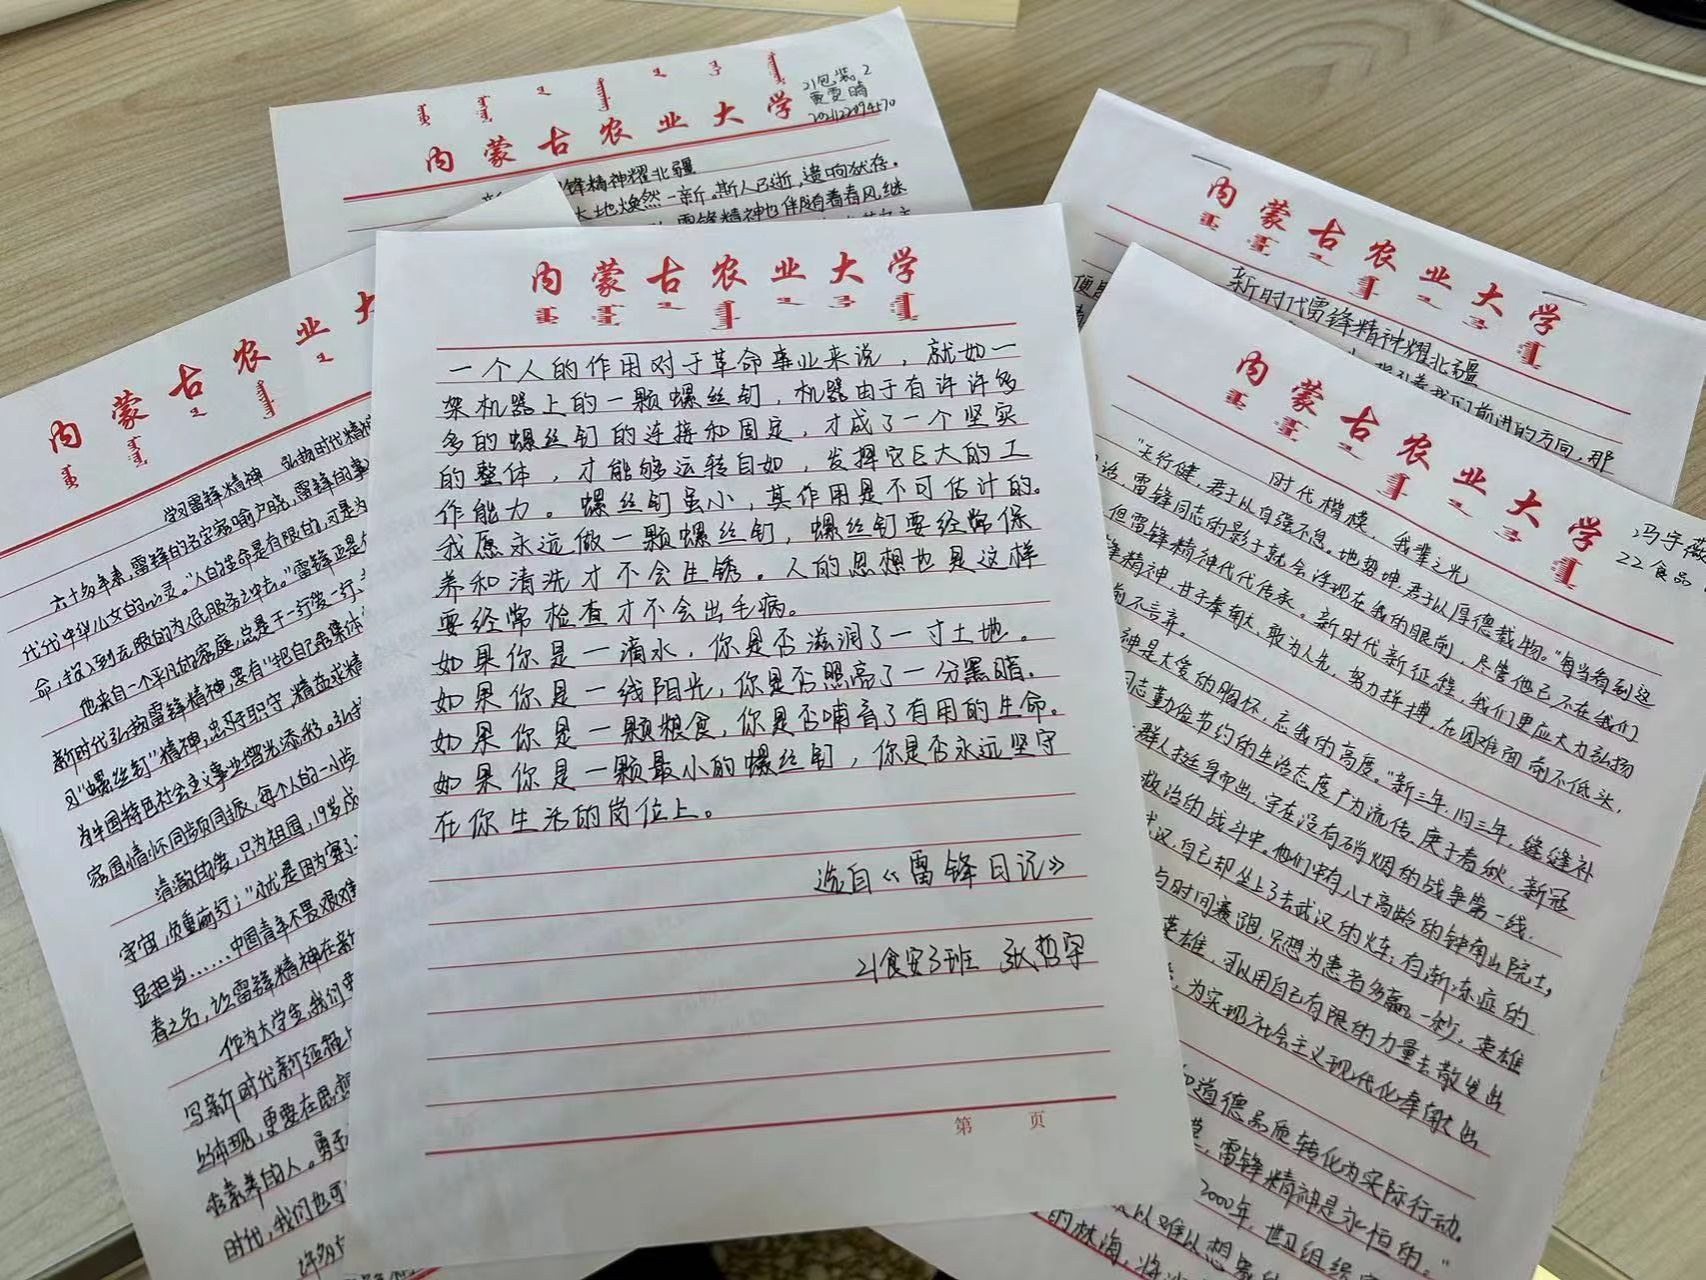 内蒙古农业大学
21包装2
202122094570
锋精神耀北疆
大地焕然一新。斯人已逝,遗响犹存。
雷锋精神也伴随着春风继
内蒙古农业大学
一个人的作用对于革命事业来说,就如一
架机器上的一颗螺丝钉,机器由于有许许多
多的螺丝钉的连接和固定,才成了一个坚实
的整体,才能够运转自如,发挥它巨大的工
作能力。螺丝钉虽小,其作用是不可估计的。
我愿永远做一颗螺丝钉,螺丝钉要经常保
养和清洗才不会生锈。人的思想也是这样
要经常检查才不会出毛病。
如果你是一滴水,你是否滋润了一寸土地。
如果你是一线阳光,你是否照亮了一分黑暗。
如果你是一颗粮食,你是否哺育了有用的生命。
如果你是一颗最小的螺丝钉,你是否永远坚守
在你生活的岗位上。
选自《雷锋日记》
21食安3班 张哲宇
第 页
内蒙古农业大
学习雷锋精神 弘扬时代精神
六十多年来,雷锋的名字家喻户晓,雷锋的事
代代中华儿女的心灵。"人的生命是有限的,可是为
命,投入到无限的为人民服务之中去。"雷锋正是
他来自一个平凡的家庭,总是干一行爱一行,
新时代弘扬雷锋精神,要有"把自己
习"螺丝钉"精神,忠于职守,精益求精
为中国特色社会主义事业增光添彩。弘扬
家国情怀同频同振,每个人的一小步
清澈的爱,只为祖国,19岁戍
宇宙,负重前行;"
显担当……中国青年不畏艰难
者之名,让雷锋精神在新
作为大学生,我们要
写新时代新征程
的体现,更要在思想
求素养的人。勇于
时代,我们也可
许多
内蒙古农业大学
新时代雷锋精神耀北疆
引着我们前进的方向,那
内蒙古农业大学
冯宇薇
22食品
时代楷模,我辈之光
"天行健,君子以自强不息。地势坤,君子以厚德载物。"每当看到这
雷锋同志的影子就会浮现在我的眼前,尽管他已不在我们
但雷锋精神代代传承。新时代新征程,我们更应大力弘扬
锋精神,甘于奉献,敢为人先,努力拼搏,在困难面前不低头,
前不言弃。
神是大爱的胸怀,忘我的高度。"新三年,旧三年,缝缝补
同志勤俭节约的生活态度广为流传。庚子春秋,新冠
群人挺身而出,守在没有硝烟的战争第一线。
救治的战斗中,他们中有八十高龄的钟南山院士,
武汉,自己却坐上了去武汉的火车;有渐冻症的
与时间赛跑,只想为患者多赢一秒。英雄
英雄,可以用自己有限的力量去散发出
为实现社会主义现代化奉献出
道德品质转化为实际行动。
雷锋精神是永恒的。"
2000年,世卫组织
以难以想象的
的林海,将